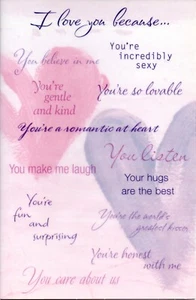 I love you because...
You believe in me
You're
incredibly
sexy
You're
gentle
and kind
You're so lovable
You're a romantic at heart
You listen
You make me laugh
Your hugs
are the best
You're
fun
and
surprising
You're the world's
greatest kisser
You're honest
with me
You care about us